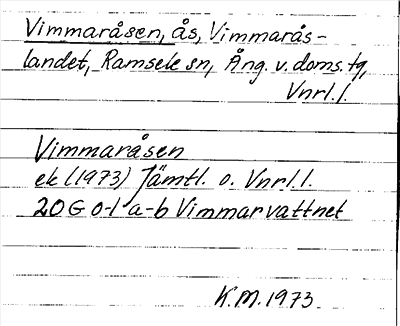 Vimmaråsen, ås, Vimmarås-
landet, Ramsele sn, Ång. v. doms. tg,
Vnrl. l.
Vimmaråsen
ek (1973) Jämtl. o. Vnrl. l.
20 G o-l a-b Vimmarvattnet
K.M. 1973